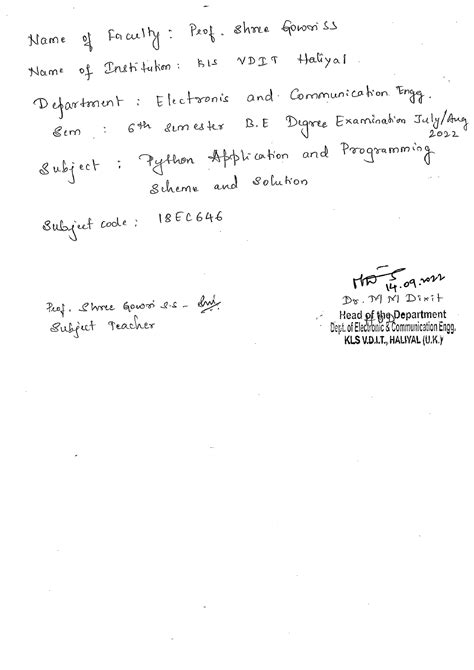 Name of Faculty : Prof. Shree Gowri SS
Name of Institution : KLS VDIT Haliyal
Department : Electronis and Communication Engg.
Sem : 6th Semester B.E Degree Examination July/Aug
2022
Subject : Python Application and Programming
Scheme and Solution
Subject code : 18EC646
14.09.2022
Dr. M M Dixit
Prof. Shree Gowri S.S -
Subject Teacher
Head of the Department
Dept. of Electronic & Communication Engg.
KLS V.D.I.T., HALIYAL (U.K.)